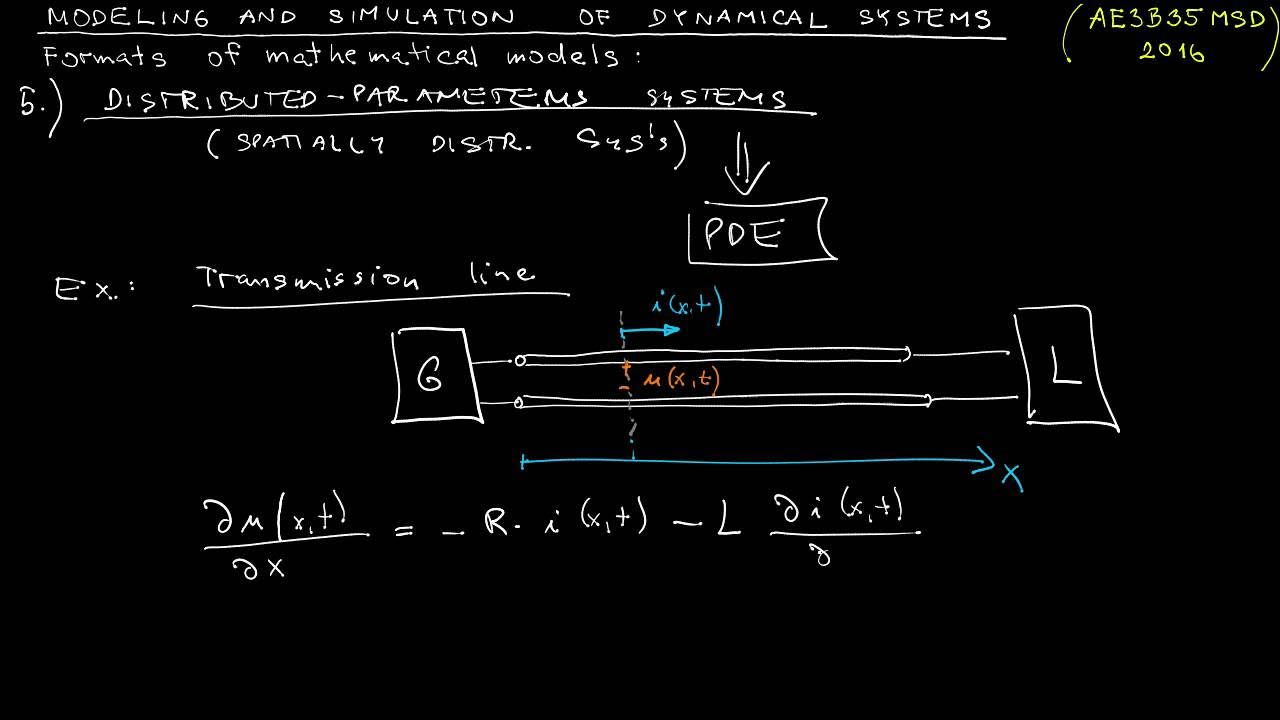 MODELING AND SIMULATION OF DYNAMICAL SYSTEMS
(AE3B35MSD)
2016
Formats of mathematical models:
5.) DISTRIBUTED-PARAMETEMS SYSTEMS
(SPATIALLY DISTR. SYS'S)
⇓
PDE
Ex.: Transmission line
i(x,t)
G
u(x,t)
L
x
∂u(x,t)/∂x = - R. i(x,t) - L ∂i(x,t)/∂